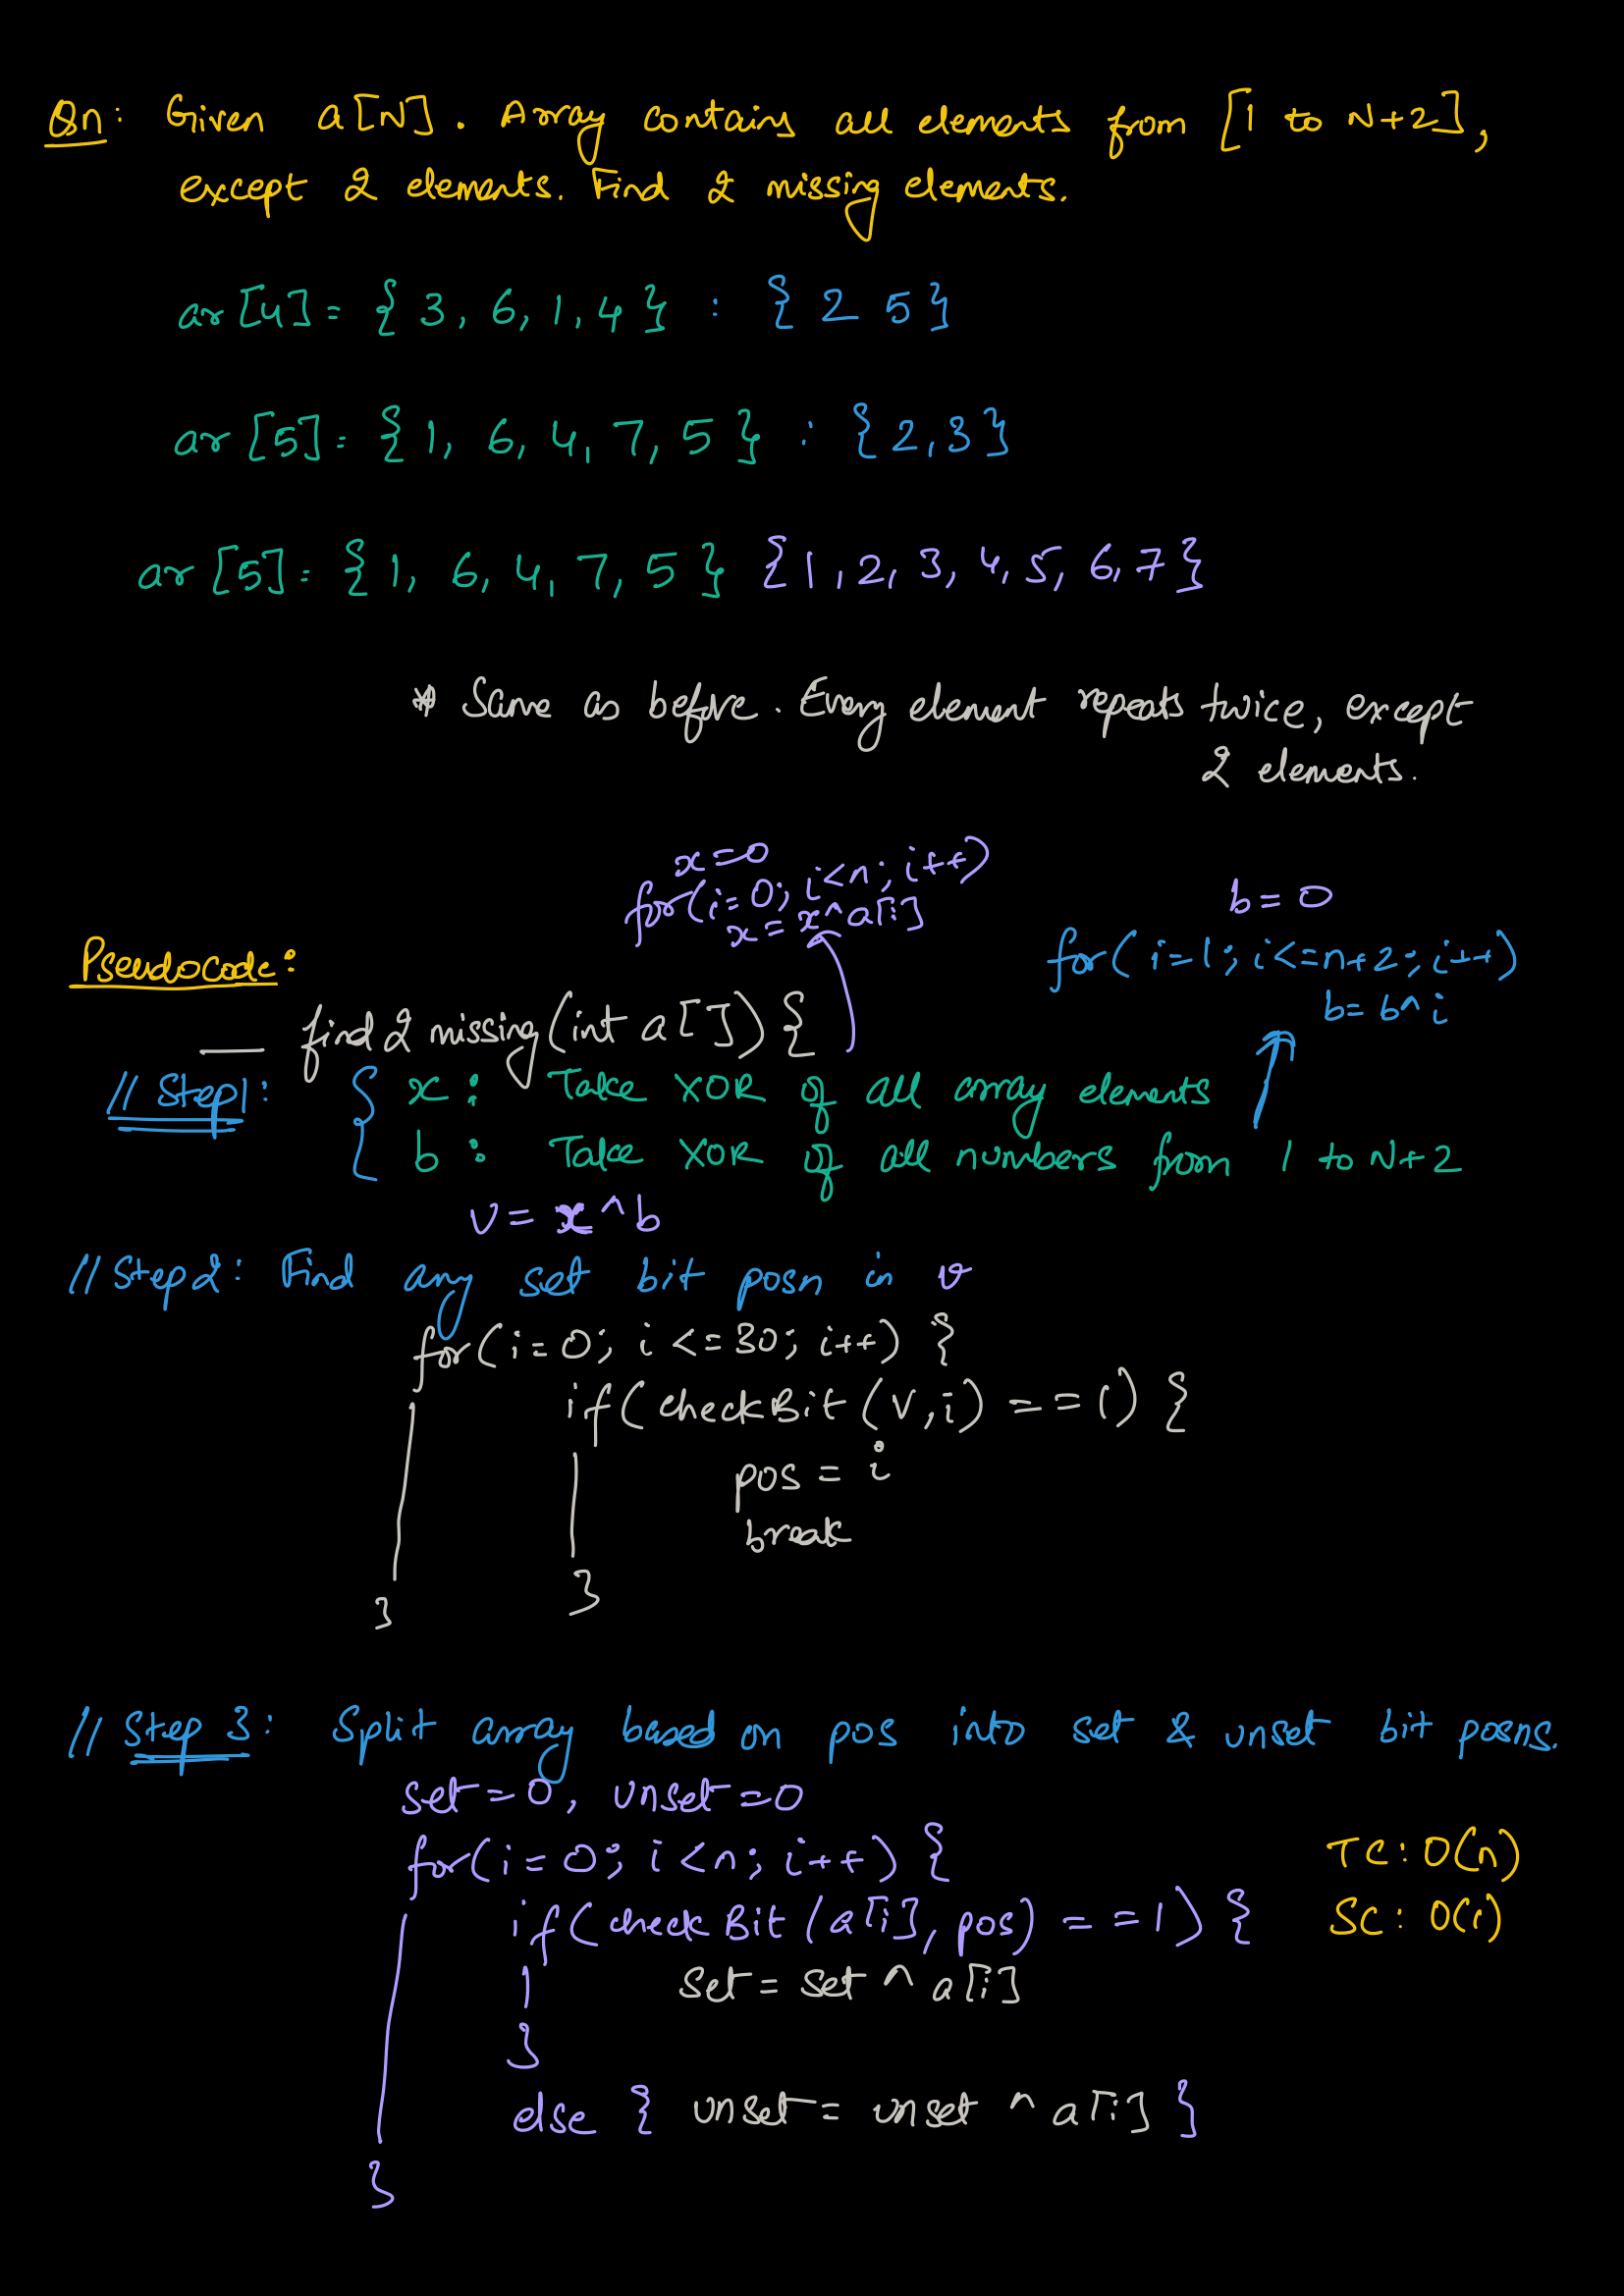 Qn: Given a[N]. Array contains all elements from [1 to N+2],
except 2 elements. Find 2 missing elements.
ar[4]= { 3, 6, 1, 4 } : { 2 5 }
ar[5]= { 1, 6, 4, 7, 5 } : { 2, 3 }
ar[5]= { 1, 6, 4, 7, 5 } { 1, 2, 3, 4, 5, 6, 7 }
* Same as before. Every element repeats twice, except
2 elements.
x=0
for(i=0; i<n; i++)
x = x^a[i]
b=0
for(i=1; i<=n+2; i++)
b= b^i
Pseudocode:
__ find2missing(int a[]) {
// Step1: { x: Take XOR of all array elements
b: Take XOR of all numbers from 1 to N+2
v = x^b
// Step2: Find any set bit posn in v
for(i=0; i<=30; i++) {
if(checkBit(v,i) == 1) {
pos = i
break
}
}
// Step 3: Split array based on pos into set & unset bit posns.
set=0, unset=0
for(i=0; i<n; i++) {
TC: O(n)
if(checkBit(a[i], pos) == 1) {
SC: O(1)
set = set ^ a[i]
}
else { unset = unset ^ a[i] }
}